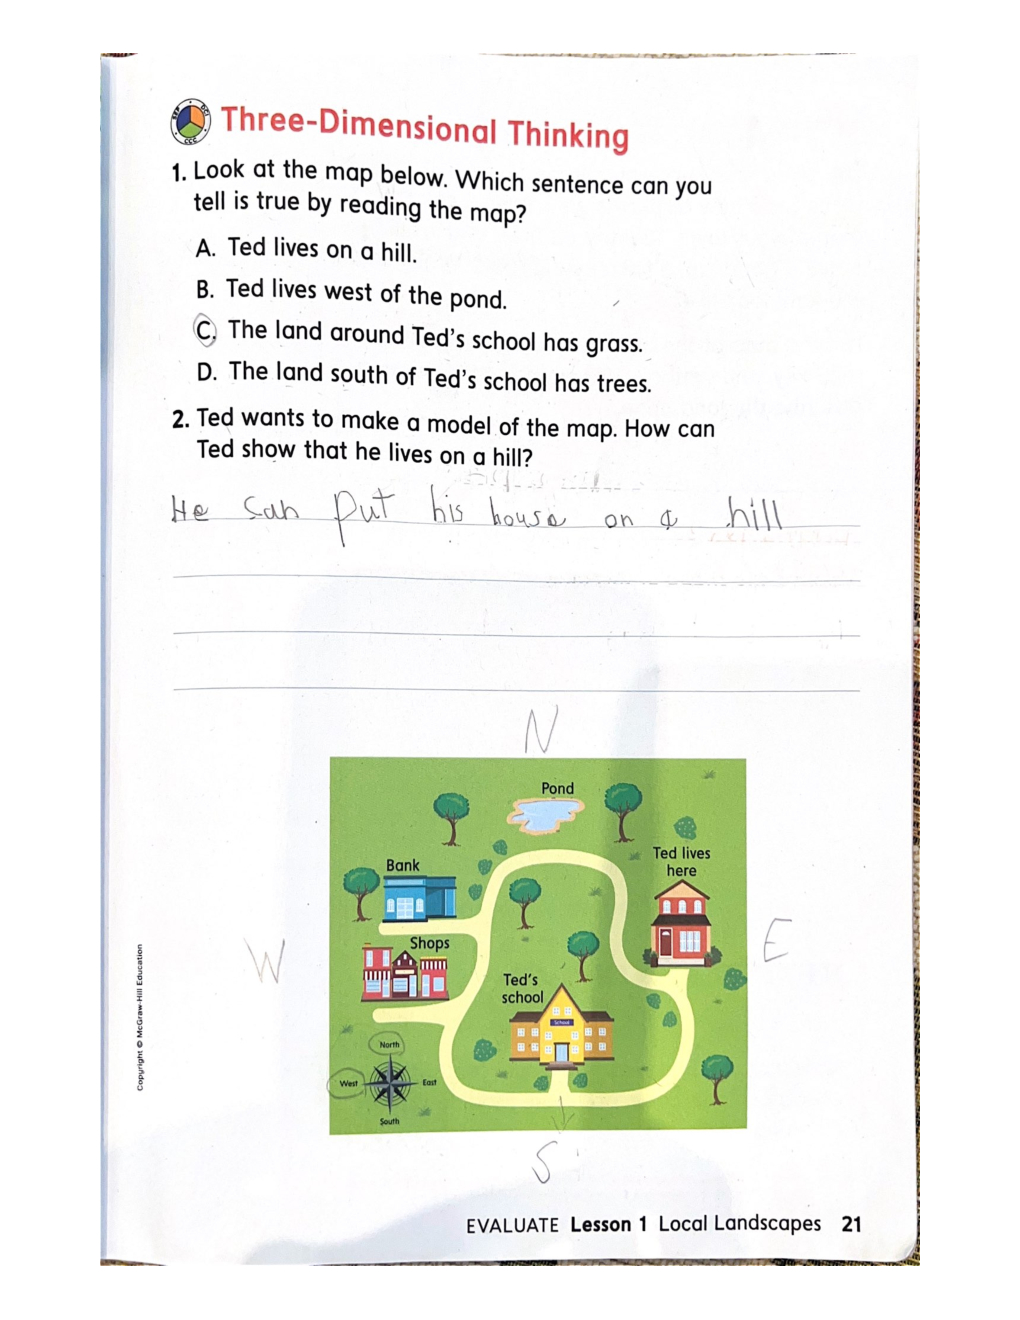 Three-Dimensional Thinking
1. Look at the map below. Which sentence can you
tell is true by reading the map?
A. Ted lives on a hill.
B. Ted lives west of the pond.
C. The land around Ted's school has grass.
D. The land south of Ted's school has trees.
2. Ted wants to make a model of the map. How can
Ted show that he lives on a hill?
He can put his house on a hill
N
Pond
Ted lives
here
Bank
W
E
Shops
Ted's
school
School
North
West
East
South
S
Copyright © McGraw-Hill Education
EVALUATE Lesson 1 Local Landscapes 21